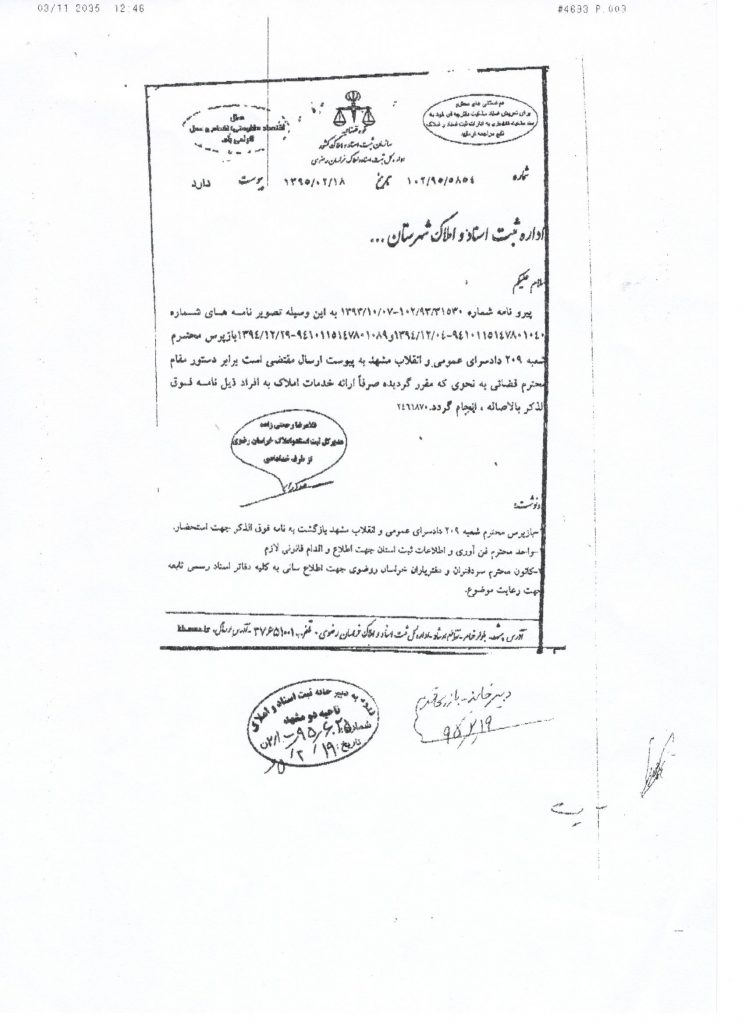 03/11 2035 12:46 #4693 P.003
هم میهنان محترم
برای تعویض سند مالکیت دفترچه ای خود به
مراجعه فرمایید
سال
اقتصاد مقاومتی؛ اقدام و عمل
گرامی باد
قوه قضائیه
سازمان ثبت اسناد و املاک کشور
اداره کل ثبت اسناد و املاک خراسان رضوی
شماره ۱۰۲/۹۵/۵۸۵۴ تاریخ ۱۳۹۵/۰۲/۱۸ پیوست دارد
اداره ثبت اسناد و املاک شهرستان ...
سلام علیکم
پیرو نامه شماره ۱۰۲/۹۳/۳۱۵۳۰-۱۳۹۳/۱۰/۰۷ به این وسیله تصویر نامه های شماره
۹۴۱۰۱۱۵۱۴۷۸۰۱۰۴۰-۱۳۹۴/۱۲/۰۴و۹۴۱۰۱۱۵۱۴۷۸۰۱۰۸۹-۱۳۹۴/۱۲/۲۹بازپرس محترم
شعبه ۲۰۹ دادسرای عمومی و انقلاب مشهد به پیوست ارسال مقتضی است برابر دستور مقام
محترم قضائی به نحوی که مقرر گردیده صرفاً ارائه خدمات املاک به افراد ذیل نامه فوق
الذکر بالاصاله ، انجام گردد.۲۴۶۱۸۷۰
غلامرضا رحمتی زاده
مدیرکل ثبت اسناد و املاک خراسان رضوی
از طرف خدادادی
رونوشت:
-بازپرس محترم شعبه ۲۰۹ دادسرای عمومی و انقلاب مشهد بازگشت به نامه فوق الذکر جهت استحضار.
-واحد محترم فن آوری و اطلاعات ثبت استان جهت اطلاع و اقدام قانونی لازم
-کانون محترم سردفتران و دفتریاران خراسان رضوی جهت اطلاع رسانی به کلیه دفاتر اسناد رسمی تابعه
جهت رعایت موضوع.
آدرس: مشهد- بلوار خیام- - اداره کل ثبت اسناد و املاک خراسان رضوی - تلفن: ۳۷۶۵۱۰۰۱-آدرس
ورود به دبیرخانه ثبت اسناد و املاک
ناحیه دو مشهد
شماره
تاریخ: ۱۹ / ۲ / ۹۵
دبیرخانه-
۹۵/۲/۱۹